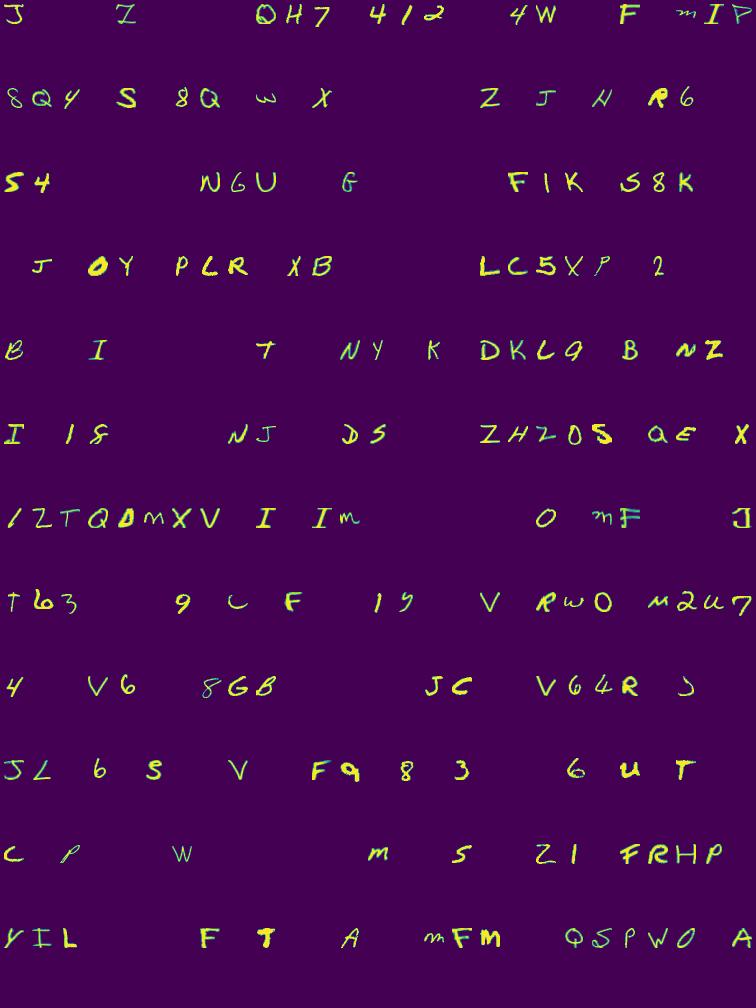 J Z QH7 412 4W F mIP
8QY S 8Q W X Z J N R6
S4 NGU G F1K S8K
J OY PLR XB LC5XP 2
B I T NY K DKL9 B NZ
I 18 NJ DS ZHZOS QE X
1ZTQDmXV I Im O mF J
T63 9 C F 19 V RWO M2U7
4 V6 8GB JC V64R J
JL 6 S V F9 8 3 6 U T
C P W m S Z1 FRHP
YIL F T A mFM QSPWO A